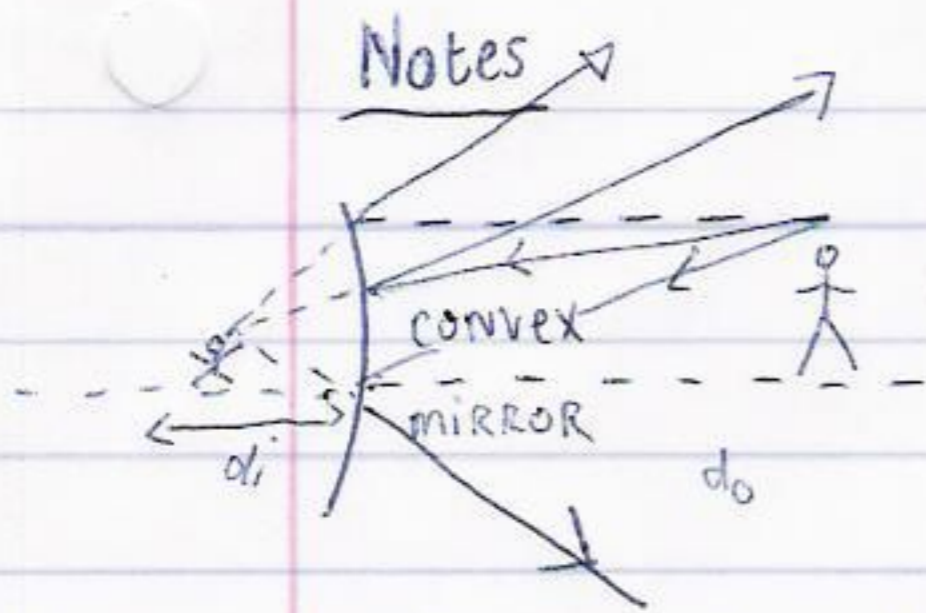 Notes
convex
mIRROR
di
do